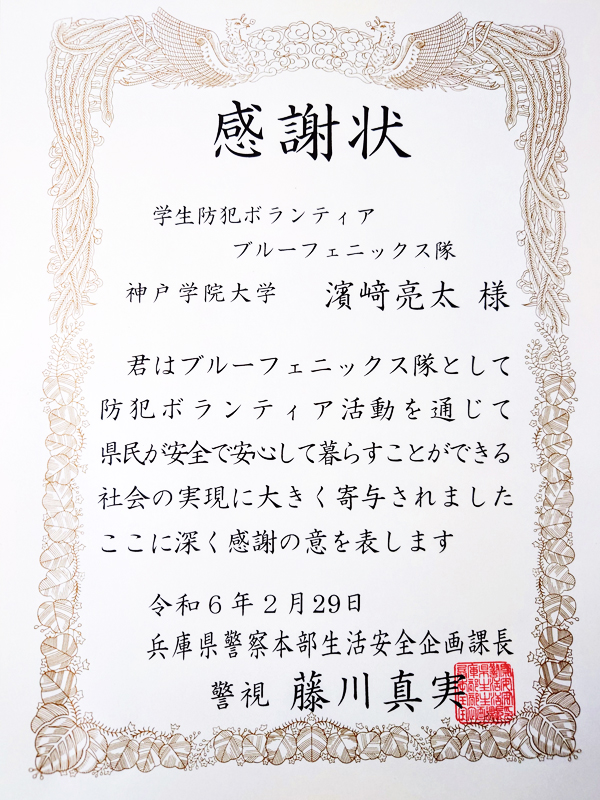 感謝状
学生防犯ボランティア
ブルーフェニックス隊
神戸学院大学　濱﨑亮太 様
君はブルーフェニックス隊として
防犯ボランティア活動を通じて
県民が安全で安心して暮らすことができる
社会の実現に大きく寄与されました
ここに深く感謝の意を表します
令和６年２月29日
兵庫県警察本部生活安全企画課長
警視　藤川真実